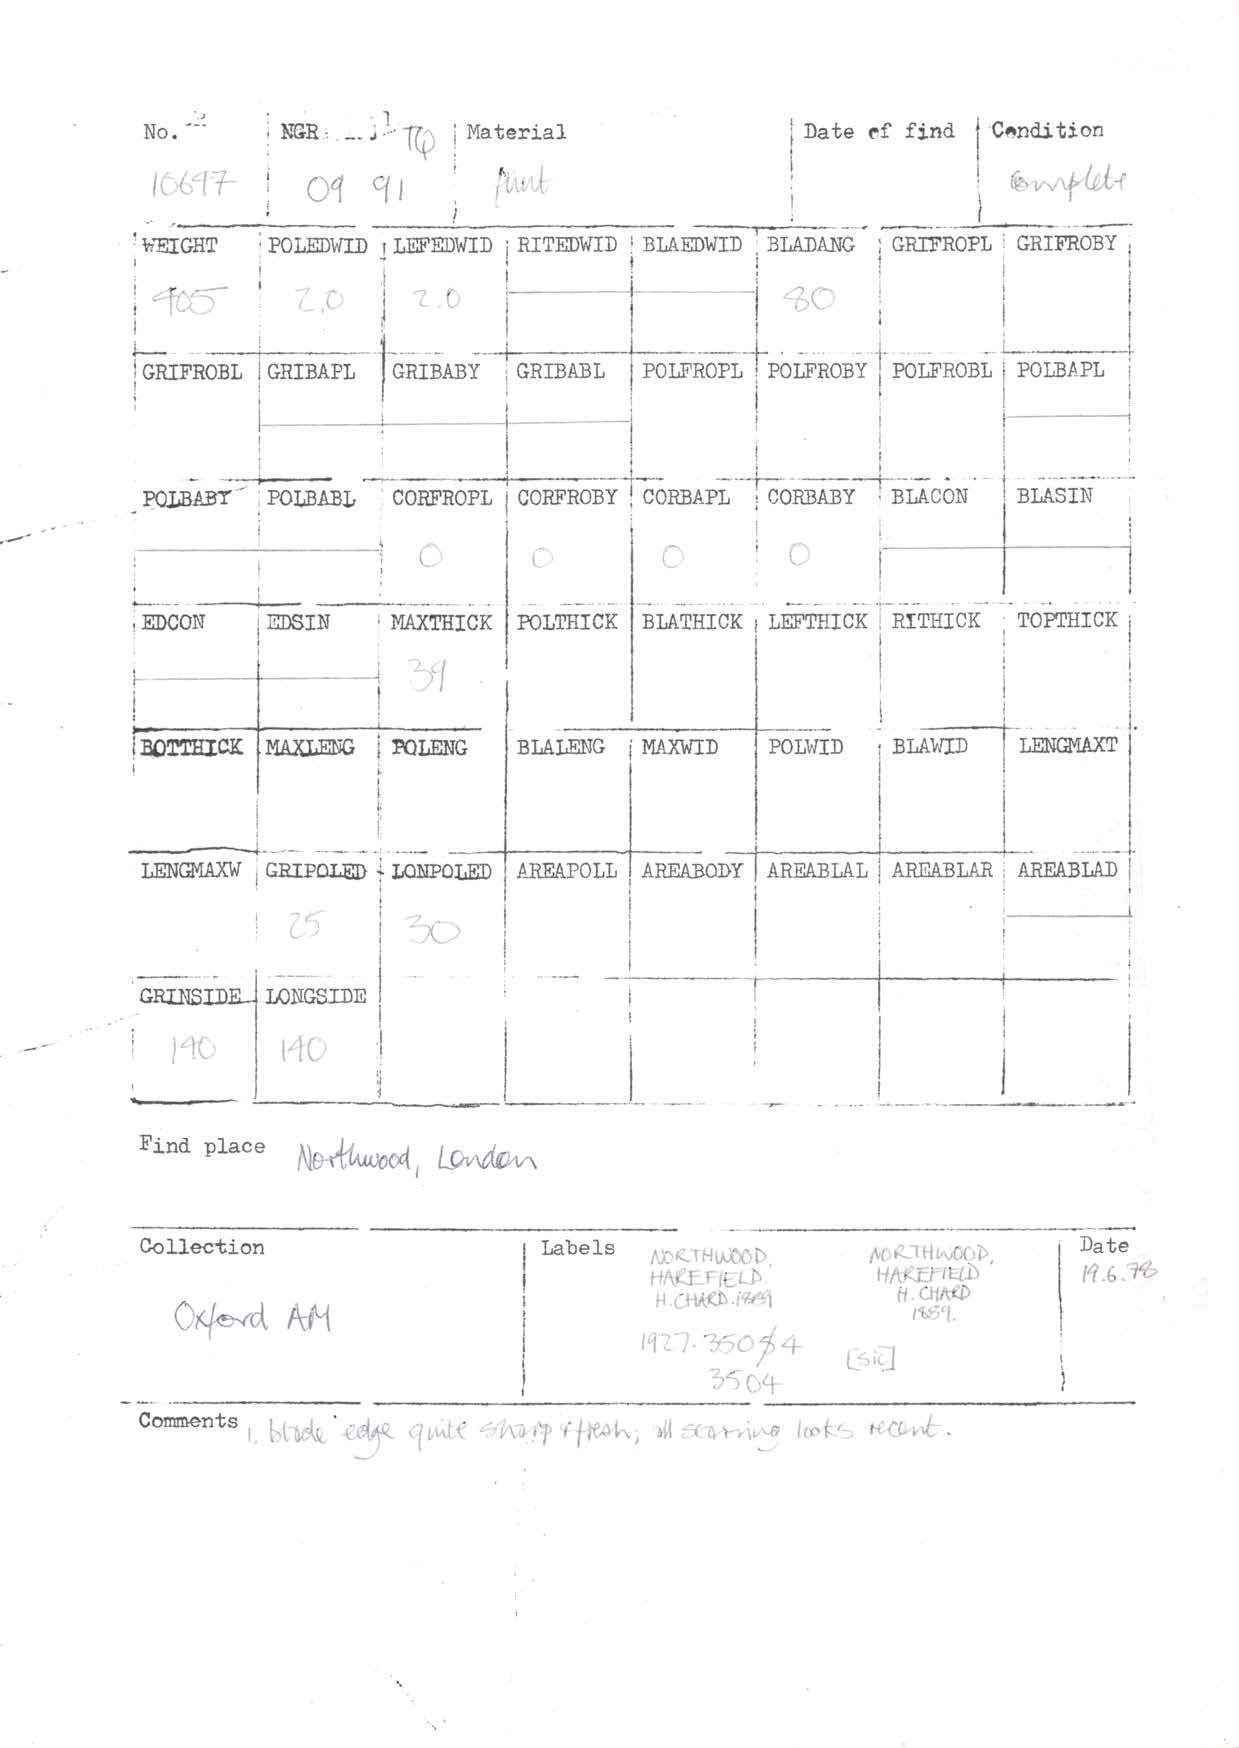 No. NGR TQ Material Date of find Condition
10697 09 91 flint complete
WEIGHT POLEDWID LEFEDWID RITEDWID BLAEDWID BLADANG GRIFROPL GRIFROBY
405 2.0 2.0 80
GRIFROBL GRIBAPL GRIBABY GRIBABL POLFROPL POLFROBY POLFROBL POLBAPL
POLBABY POLBABL CORFROPL CORFROBY CORBAPL CORBABY BLACON BLASIN
0 0 0 0
EDCON EDSIN MAXTHICK POLTHICK BLATHICK LEFTHICK RITHICK TOPTHICK
39
BOTTHICK MAXLENG POLENG BLALENG MAXWID POLWID BLAWID LENGMAXT
LENGMAXW GRIPOLED LONPOLED AREAPOLL AREABODY AREABLAL AREABLAR AREABLAD
25 30
GRINSIDE LONGSIDE
140 140
Find place Northwood, London
Collection Labels Date
Oxford AM
NORTHWOOD,
HAREFIELD.
H. CHARD. 1889
1927. 350 4
3504
NORTHWOOD,
HAREFIELD
H. CHARD
1889.
[sic]
19.6.78
Comments 1. blade edge quite sharp & fresh; all scarring looks recent.